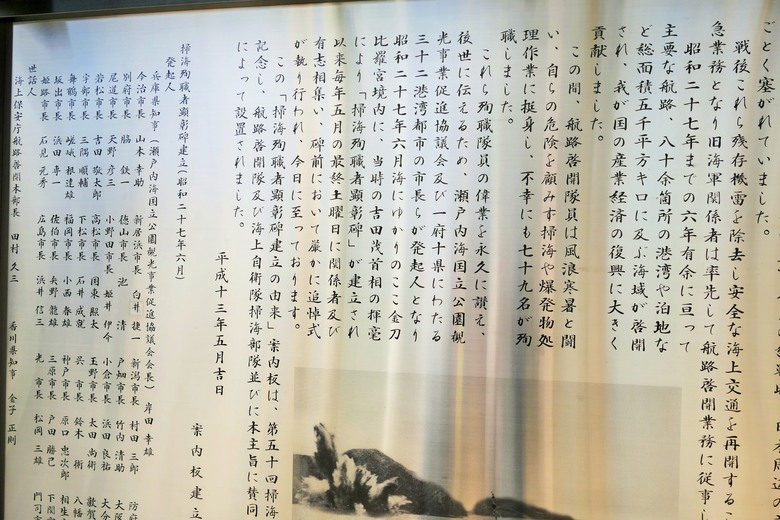 ごとく塞がれていました。
戦後これら残存機雷を除去し安全な海上交通を再開するこ
急業務となり旧海軍関係者は率先して航路啓開業務に従事し
昭和二十七年までの六年有余に亘って
主要な航路、八十余箇所の港湾や泊地な
ど総面積五千平方キロに及ぶ海域が啓開
され、我が国の産業経済の復興に大きく
貢献しました。
この間、航路啓開隊員は風浪寒暑と闘
い、自らの危険を顧みず掃海や爆発物処
理作業に挺身し、不幸にも七十九名が殉
職しました。
これら殉職隊員の偉業を永久に讃え、
後世に伝えるため、瀬戸内海国立公園観
光事業促進協議会及び一府十県にわたる
三十二港湾都市の市長らが発起人となり
昭和二十七年六月海にゆかりのここ金刀
比羅宮境内に、当時の吉田茂首相の揮毫
により「掃海殉職者顕彰碑」が建立され
以来毎年五月の最終土曜日に関係者及び
有志相集い、碑前において厳かに追悼式
が執り行われ、今日に至っております。
この「掃海殉職者顕彰碑建立の由来」案内板は、第五十回掃海
記念し、航路啓開隊及び海上自衛隊掃海部隊並びに本主旨に賛同
によって設置されました。
平成十三年五月吉日
案内板建立
掃海殉職者顕彰碑建立(昭和二十七年六月)
発起人
兵庫県知事(瀬戸内海国立公園観光事業促進協議会会長) 岸田 幸雄
今治市長 山本 幸助 新居浜市長 白井 捷一 新潟市長 村田 三郎 防府
別府市長 脇 鉄一 徳山市長 池 清 戸畑市長 竹内 清助 大阪
尾道市長 天野 彦三 小野田市長 姫井 伊介 小倉市長 浜田 良祐 大分
若松市長 吉田 敬太郎 高松市長 国東 照太 玉野市長 太田 尚術 敦賀
宇部市長 三隅 順輔 下松市長 石井 成就 呉 市長 鈴木 術 八幡
舞鶴市長 嵯峨根達雄 福岡市長 小西 春雄 神戸市長 原口 忠次郎 相生
坂出市長 浜田 専一 佐伯市長 矢野 龍雄 三原市長 戸田 勝己 下関
姫路市長 石見 元秀 広島市長 浜井 信三 光 市長 松岡 三雄 門司
世話人
海上保安庁航路啓開本部長 田村 久三 香川県知事 金子 正則